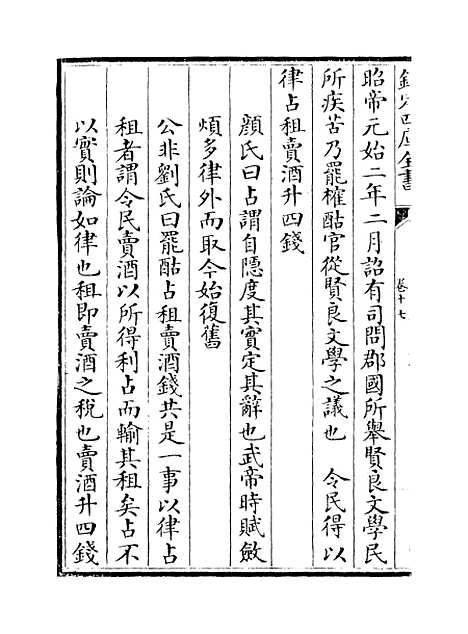 欽定四庫全書
卷十七
昭帝元始二年二月詔有司問郡國所舉賢良文學民
所疾苦乃罷榷酤官從賢良文學之議也　令民得以
律占租賣酒升四錢
顔氏曰占謂自隱度其實定其辭也武帝時賦斂
煩多律外而取今始復舊
公非劉氏曰罷酤占租賣酒錢共是一事以律占
租者謂令民賣酒以所得利占而輸其租矣占不
以實則論如律也租即賣酒之稅也賣酒升四錢